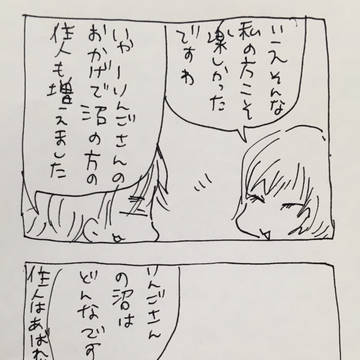 いえそんな
私の方こそ
楽しかった
ですわ
いやーりんごさんの
おかげで沼の方の
住人も増えました
りんごさん
の沼は
どんなです
住人はあばれ